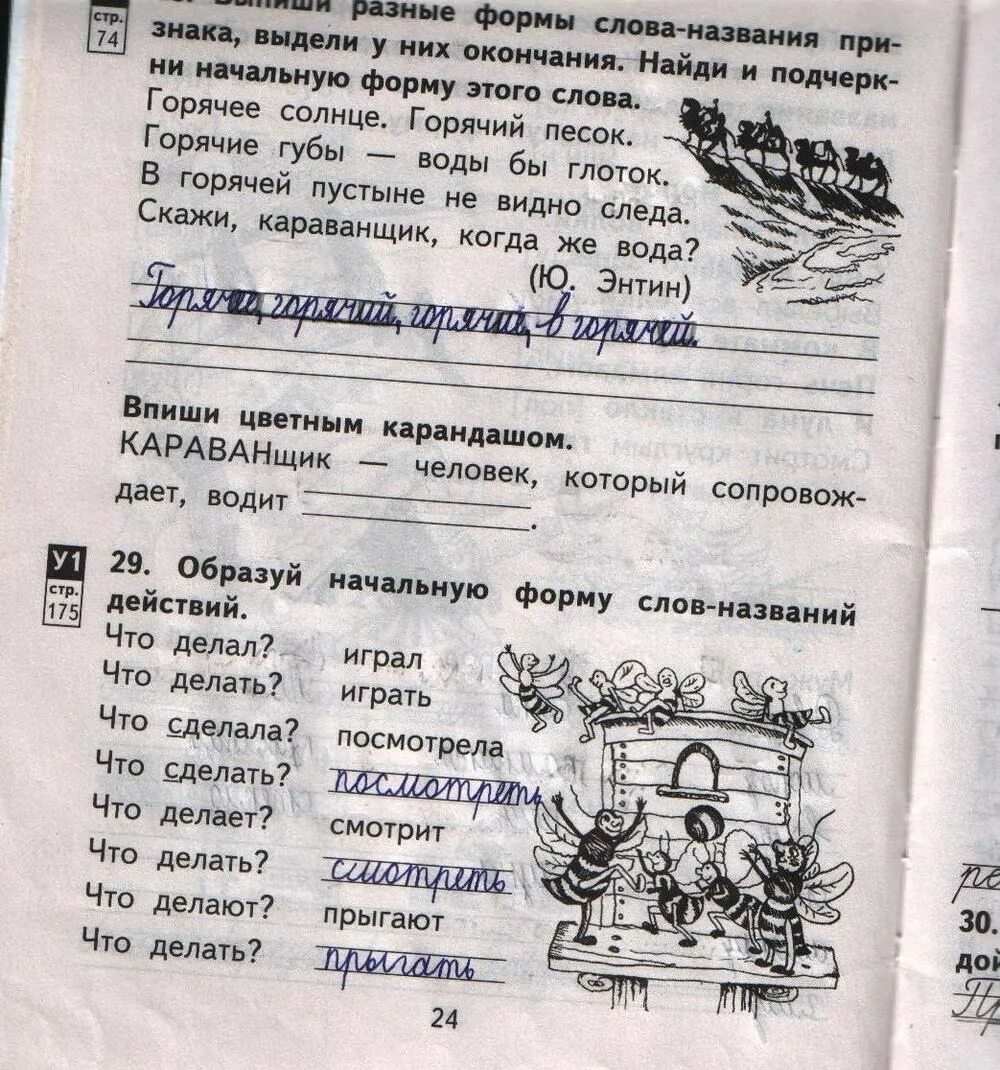 стр. 74
разные формы слова-названия при-
знака, выдели у них окончания. Найди и подчерк-
ни начальную форму этого слова.
Горячее солнце. Горячий песок.
Горячие губы — воды бы глоток.
В горячей пустыне не видно следа.
Скажи, караванщик, когда же вода?
(Ю. Энтин)
горячий, в горячей.
Впиши цветным карандашом.
КАРАВАНщик — человек, который сопровож-
дает, водит
У1
стр. 175
29. Образуй начальную форму слов-названий
действий.
Что делал? играл
Что делать? играть
Что сделала? посмотрела
Что сделать? посмотреть
Что делает? смотрит
Что делать? смотреть
Что делают? прыгают
Что делать? прыгать
24
30.